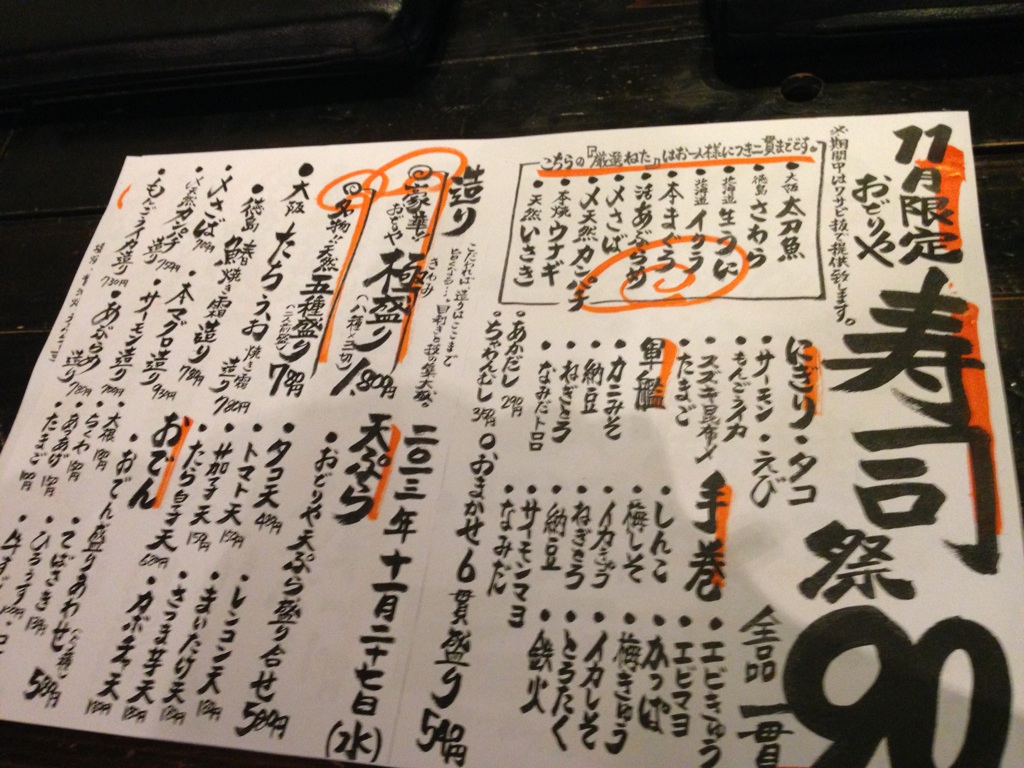 11月限定
おどりや
寿司祭
全品一貫
90
※期間中はワサビ抜で提供致します。
こちらの『厳選ねた』はお一人様につき二貫までです。
・大阪 太刀魚
・徳島 さわら
・北海道 生うに
・北海道 イクラ
・本まぐろ
・活あぶらめ
・〆さば
・〆天然カンパチ
・本焼ウナギ
・天然いさき
にぎり
・タコ
・サーモン
・えび
・もんごうイカ
・スズキ昆布〆
・たまご
軍艦
・カニみそ
・納豆
・ねぎとろ
・なみだトロロ
・あかだし 290円
・ちゃわんむし 350円
手巻
・しんこ
・梅しそ
・イカきゅう
・ねぎとろ
・納豆
・サーモンマヨ
・なみだ
・エビきゅう
・エビマヨ
・かっぱ
・梅きゅう
・イカしそ
・とろたく
・鉄火
○おまかせ6貫盛り 540円
造り
こだわれば、造りはここまで
旨くなる…。目利きと技の集大成。
◎豪華!!おどりや 極盛り(八種×三切) 1,800円
◎名物!!天然五種盛り 780円
・大阪 たちうお 焼き霜造り 780円
・徳島 鰆焼き霜造り 780円
・〆さば 780円
・本マグロ造り 980円
・〆天然カンパチ造り 780円
・サーモン造り 700円
・もんごうイカ造り 730円
・あぶらめ造り 780円
二〇一三年十一月二十七日(水)
天ぷら
・おどりや天ぷら盛り合せ 580円
・タコ天 480円
・トマト天
・茄子天
・たら白子天 680円
・レンコン天
・まいたけ天
・さつま芋天
・カボチャ天
おでん
・おでん盛りあわせ 580円
・大根
・ちくわ
・あつあげ
・たまご
・てばさき
・ひろうす
・牛すじ